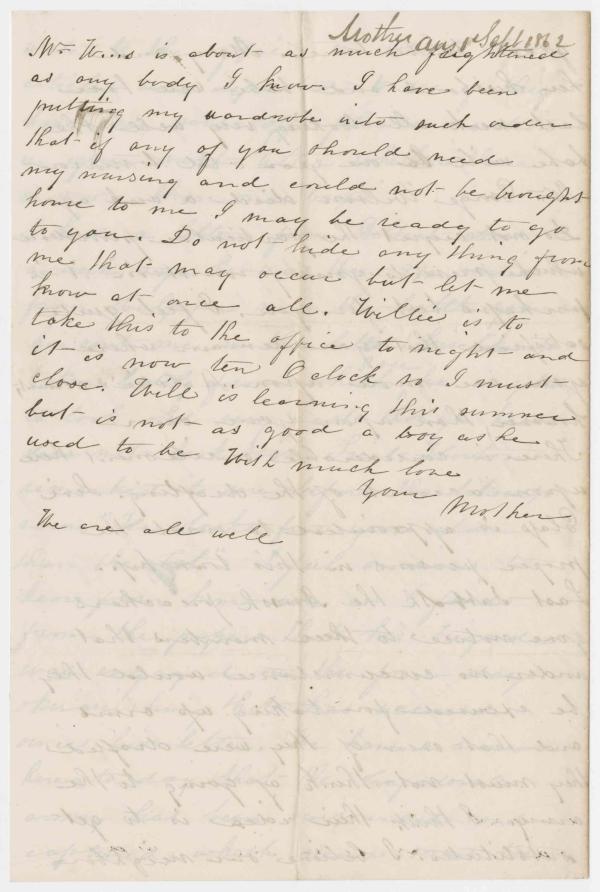 Mother ans 1 Sept 1862
Mr is about as much frightened
as any body I know. I have been
putting my wardrobe into such order
that if any of you should need
my nursing and could not be brought
home to me I may be ready to go
to you. Do not hide any thing from
me that may occur but let me
know at once all. Willie is to
take this to the office to night and
it is now ten O clock so I must
close. Will is learning this summer
but is not as good a boy as he
used to be With much love
Your Mother
We are all well